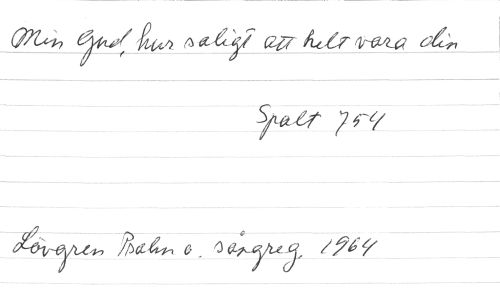 Min Gud, hur saligt att helt vara din
Spalt 754
Lövgren Psalm o. sångreg. 1964